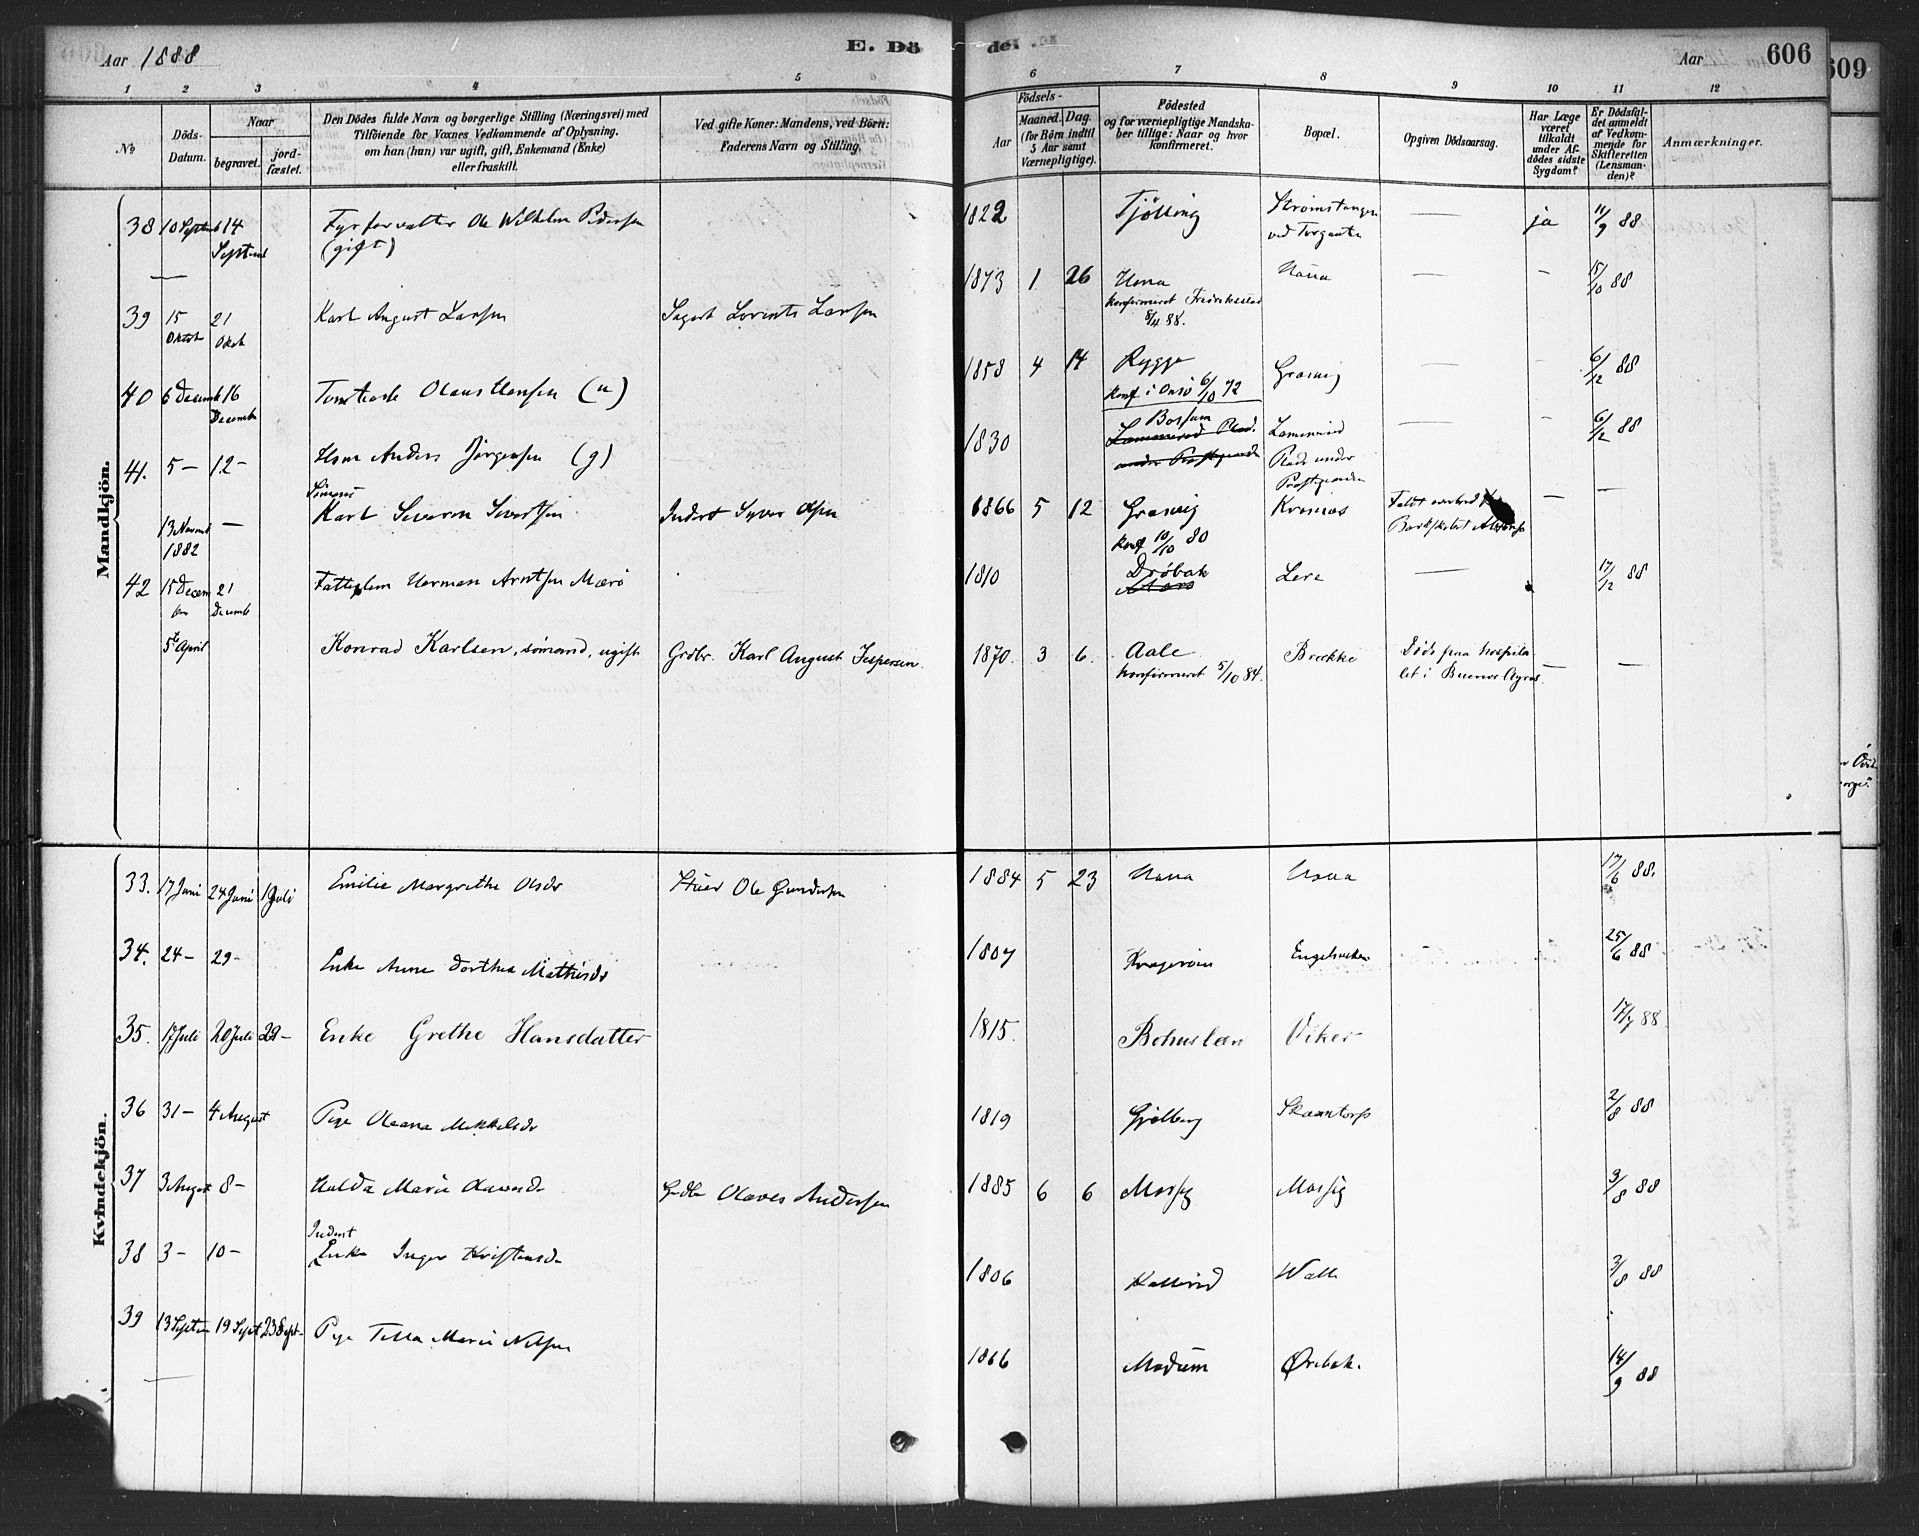 Aar 1888
E. Dö
de1 .E.
Aar
606
609
1 2 3 4 5 6 7 8 9 10 11 12
№
Döds-
Datum.
Naar
begravet.
jord-
fæstet.
Den Dödes fulde Navn og borgerlige Stilling (Næringsvei) med
Tilföiende for Voxnes Vedkommende af Oplysning,
om han (hun) var ugift, gift, Enkemand (Enke)
eller fraskilt.
Ved gifte Koner: Mandens, ved Börn:
Faderens Navn og Stilling.
Födsels-
Aar
Maaned. Dag.
(for Börn indtil
5 Aar samt
Værnepligtige).
Födested
og for værnepligtige Mandska-
ber tillige: Naar og hvor
konfirmeret.
Bopæl.
Opgiven Dödsaarsag.
Har Læge
været
tilkaldt
under Af-
dödes sidste
Sygdom?
Er Dödsfal-
det anmeldt
af Vedkom-
mende for
Skifteretten
(Lensman-
den)?
Anmærkninger.
Mandkjön.
38 10 Septemb 14 Septemb Fyrforvalter Ole Wilhelm Pedersen
(gift)
1822 Tjölling Strömtangen
ved Torgauten — ja 11/9 88
39 15 Oktob 21 Oktob Karl August Larsen Lorents Larsen
1873 1 26 Hona
konfirmeret Fredrikstad
8/4 88.
Hona — - 15/10 88
40 6 Decemb 16 Decemb Olaus Hansen (u)
1858 4 14 Rygge
konf i Onsö 6/10 72
Græsvig — — 6/12 88
41. 5 - 12 - Anders Jörgensen (g)
1830 Bossum
Lammerød Plads
under Præstegaarden
— - 6/12 88
13 Novemb 1882 — Sömand
Karl Severin Sivertsen Inderst Syver Olsen
1866 5 12 Græsvig
konf 10/10 80
Kraaknæs Faldt overbord fra
Barkskibet
— —
42 15 Decem ber 21 Decemb Fattiglem Herman Arntsen Mærö
1810 Dröbak
Lere — 17/12 88
5te April Konrad Karlsen, sömand, ugift Grdbr. Karl August Jespersen.
1870. 3 6. Aale
konfirmeret 5/10 84.
Brække Död paa hospita-
let i Buenos Ayres.
— —
Kvindekjön.
33. 17 Juni 24 Juni 1 Juli Emilie Margrethe Olsdr Ole Gundersen
1884 5 23 Hona Hona 17/6 88.
34. 24 - 29 - Enke Anne Dorthea Mathisdr
1807 Kragerøen Engelsviken 25/6 88
35. 17 Juli 20 Juli 29 - Enke Grethe Hansdatter
1815. Bohuslæn Viker 17/7 88.
36 31 - 4 August Pige Oleana Mikkelsdr
1819 Gjölberg Skaantorp 2/8 88
37 3 August 8 - Hulda Marie Olavesdr Grdbr Olaves Andersen
1885 6 6 Mossig Mossig 3/8 88
38 3 - 10 - Inderst
Enke Inger Kristensdr
1806 Kallerød Walle 3/8 88
39 13 Septem 19 Sept 23 Sept - Pige Tilla Marie Nilsen
1866 Modum Örebæk. 14/9 88